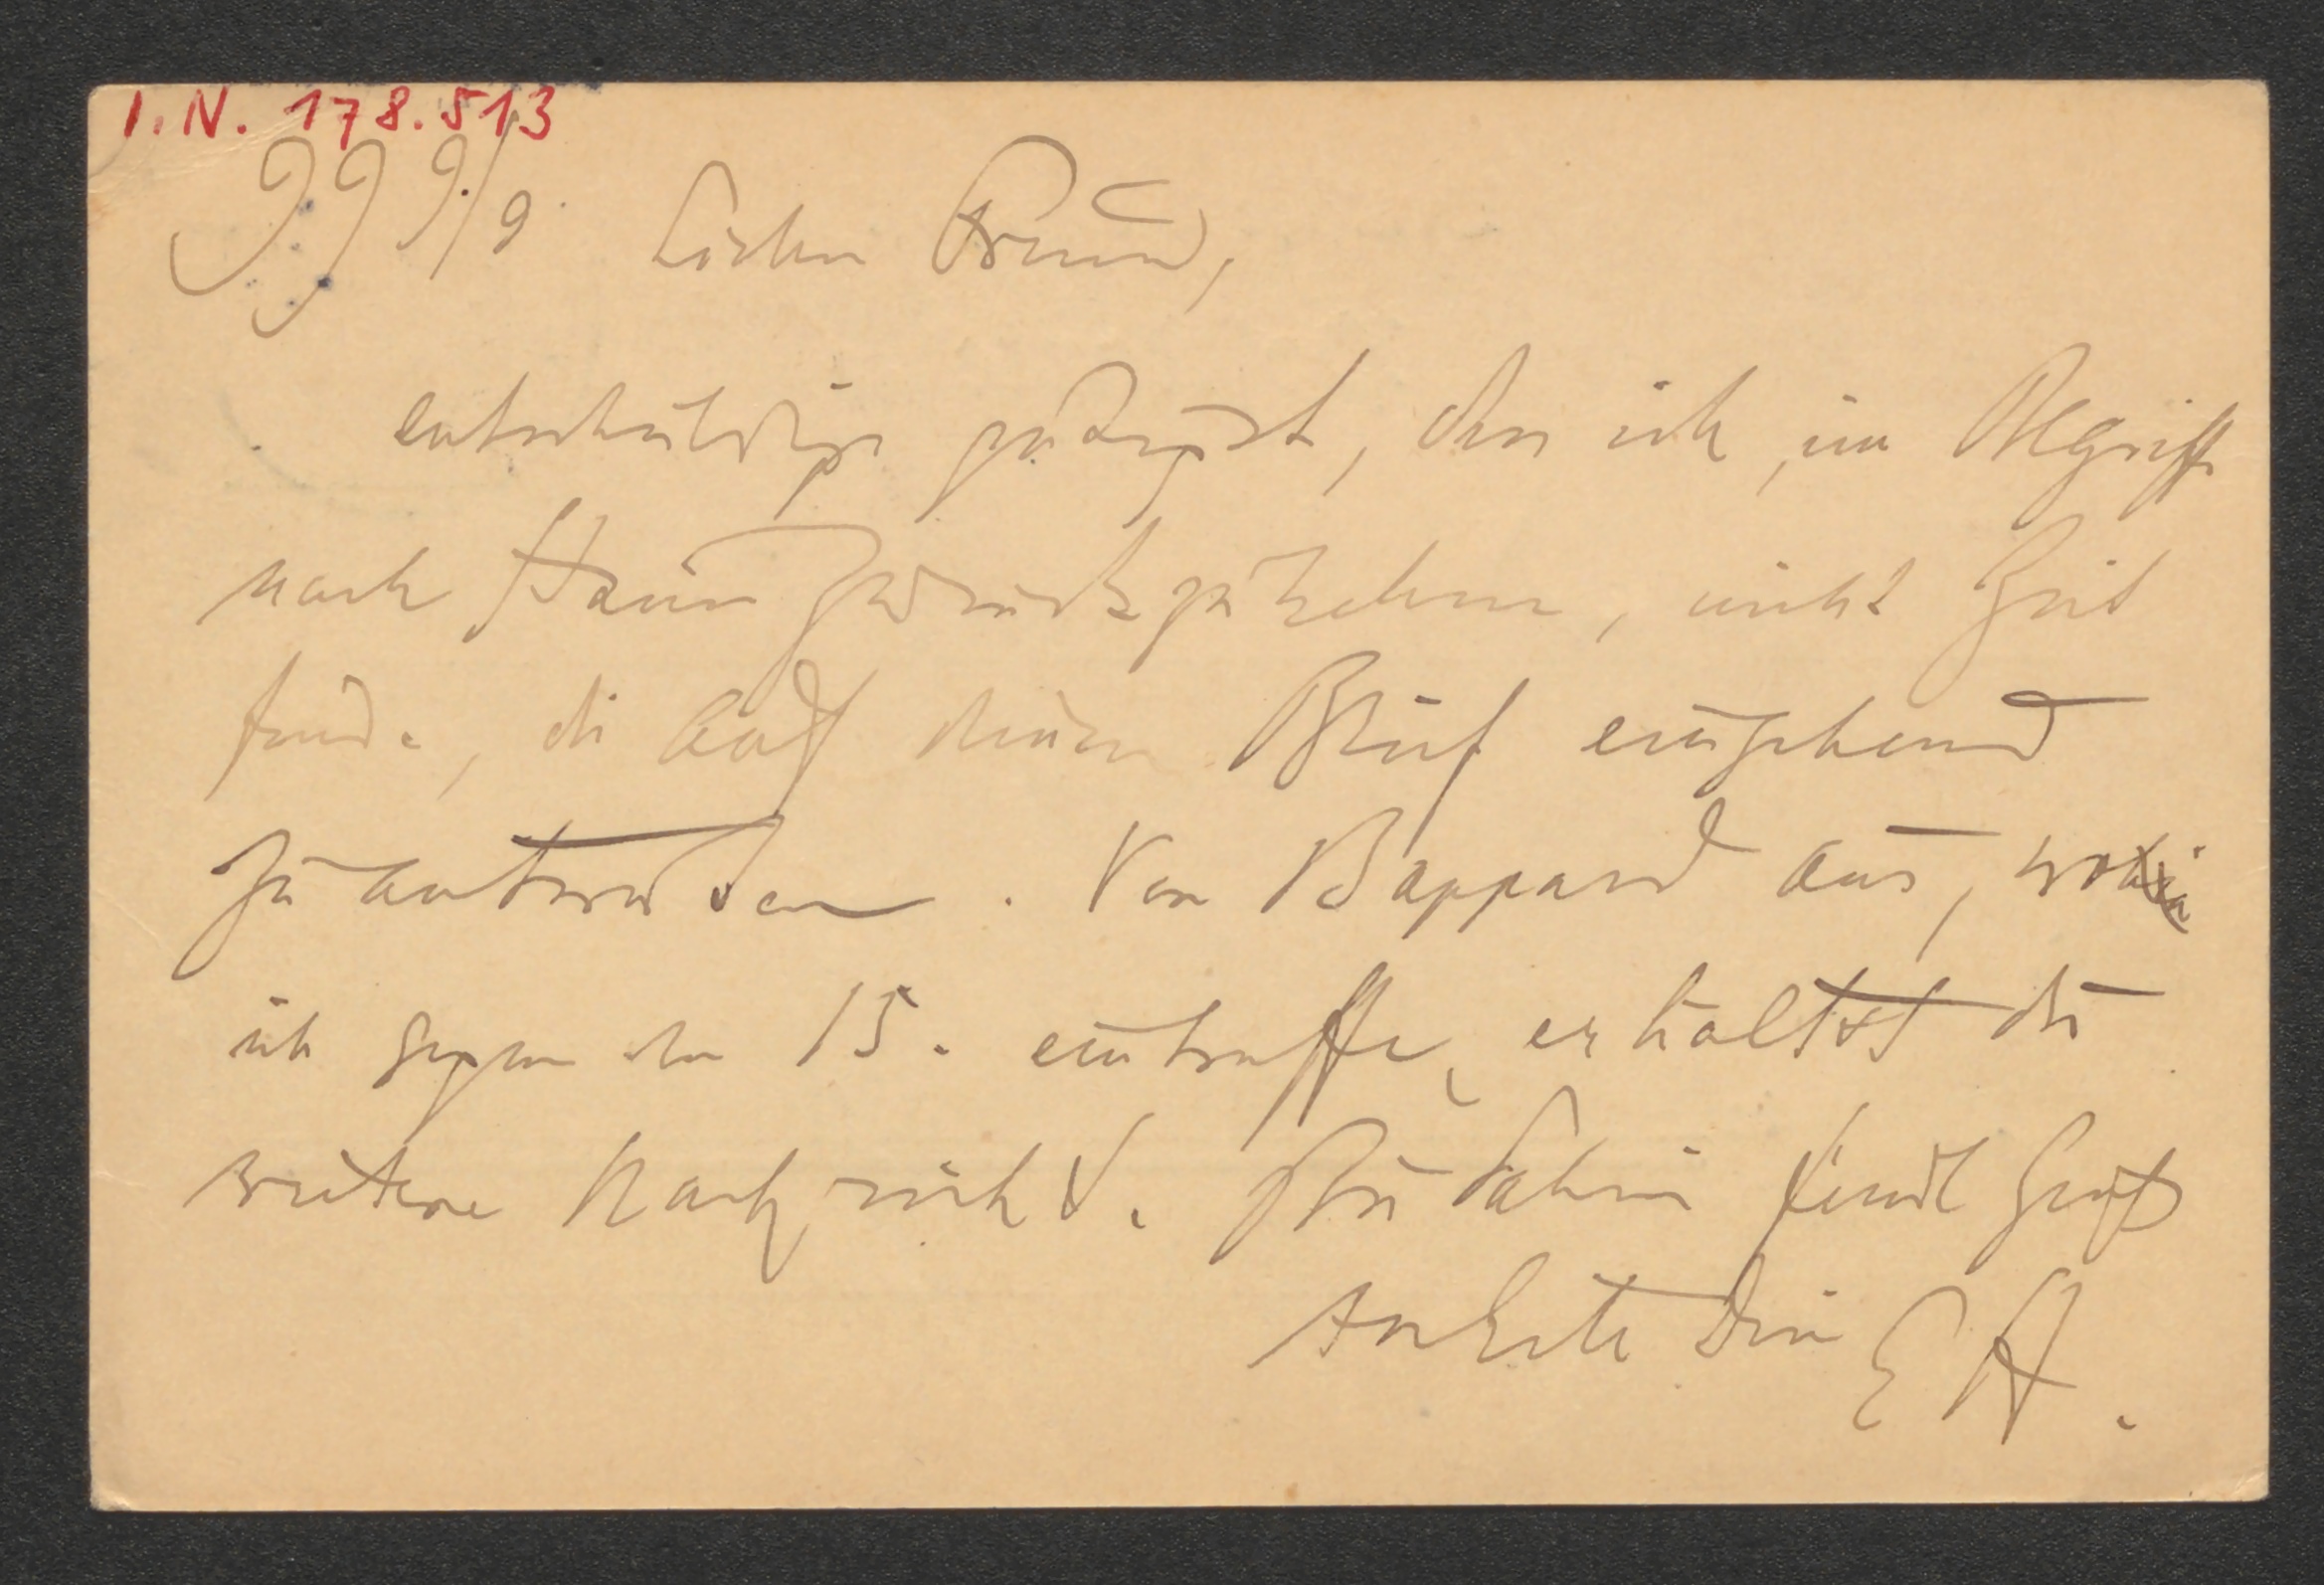 I. N. 178.513
99 9/9. Lieber Freund,
entschuldige gütigst, dass ich, im Begriffe
nach Hause zurückzukehren, nicht Zeit
finde, dir auf deinen Brief eingehend
zu antworten. Von Boppard aus, wohin
ich gegen den 15. eintreffe, erhältst du
weitere Nachricht. Bis dahin sendet Gruß
Dein E H.